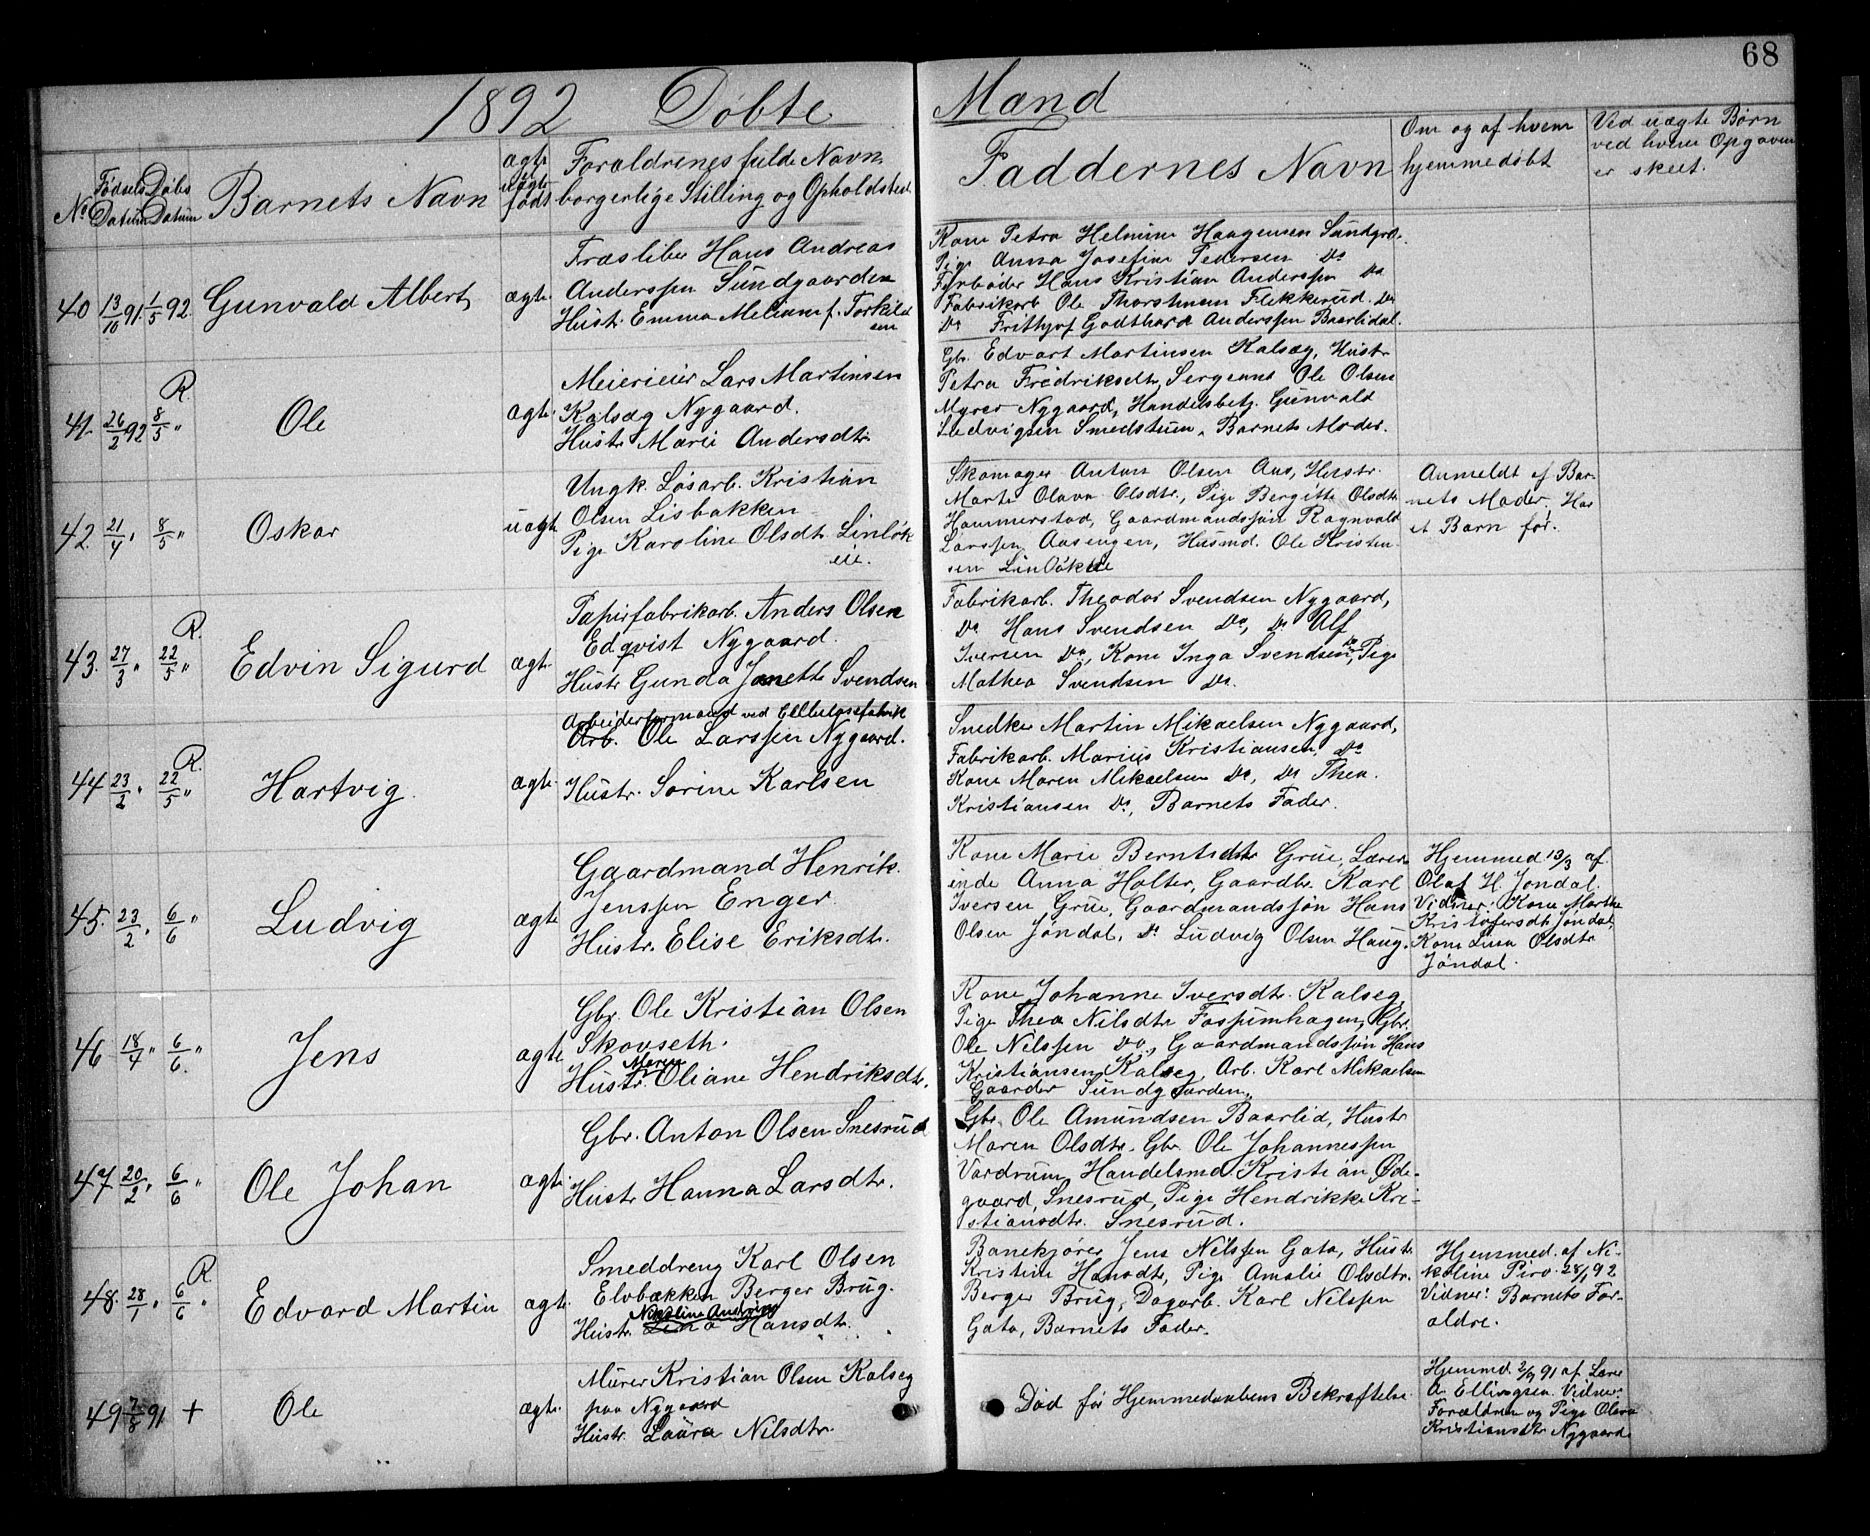 68
1892 Döbte Mænd
No
Fødsels Datum
Döbs Datum
Barnets Navn
ægte uægte født
Forældrenes fulde Navn
borgerlige Stilling og Opholdsted.
Faddernes Navn
Om og af hvem
hjemmedøbt
Ved uægte Børn
ved hvem Opgaven
er skeet.
40 13/10 91. 1/5 92. Gunvald Albert ægte
Træsliber Hans Andreas
Anderssen Sundgaarden
Hust. Emma f. Torkild
sen
Kone Petra Helmine Haagensen Sundgrd.
Pige Anna Josefine Pedersen Do
Fyrbøder Hans Kristian Anderssen Do
Fabrikarb. Ole Thorstensen Flekkerud. Do
Do Frithjof Godthard Anderssen Baarlidal.
41. 26/2 92 8/5 " R. Ole ægte.
Meierieier Lars Martinsen
Kalsæg Nygaard.
Hustr. Marie Andersdtr
Gbr. Edvart Martinsen Kalsæg, Hustr
Petra Fredriksdtr, Sergeant Ole Olsen
Myrer Nygaard, Handelsbetj. Gunvald
Ludvigsen Smedstuen, Barnets Moder.
42. 21/4 " 8/5 " Oskar uægte
Ungk. Løsarb. Kristian
Olsen Lisbakken
Pige Karoline Olsdtr Linløk
eie.
Skomager Anton Olsen Aas, Hustr.
Marte Olava Olsdtr., Pige Bergitte Olsdtr
Hammerstad, Gaardmandssøn Ragnvald
Larssen Aasengen, Husmd. Ole Kristen
sen Linløkeie
Anmeldt af Bar-
nets Moder. Har
et Barn før.
43. 27/3 " 22/5 " R. Edvin Sigurd ægte.
Papirfabrikarb. Anders Olsen
Edqvist Nygaard.
Hustr Gunda Janette Svendsen
Fabrikarb. Theodor Svendsen Nygaard,
Do Hans Svendsen Do, Do Alf
Iversen Do, Kone Inga Svendsen Do, Pige
Mathea Svendsen Do.
44 23/2 " 22/5 " R. Hartvig ægte.
Arbeiderformand ved Cellulosefabrik
Arb. Ole Larssen Nygaard.
Hustr. Sorine Karlsen
Snedker Martin Mikaelsen Nygaard,
Fabrikarb. Marius Kristiansen, Do
Kone Maren Mikaelsen Do, Do Thea
Kristiansen Do, Barnets Fader.
45. 23/2 " 6/6 " Ludvig ægte
Gaardmand Henrik
Jenssen Enger
Hustr. Elise Eriksdtr.
Kone Marie Berntsdtr Grue, Lærer-
inde Anna Holter, Gaardbr. Karl
Iversen Grue, Gaardmandssøn Hans
Olsen Jøndal, Do Ludvig Olsen Haug.
Hjemmed 13/3 af
Olaf H. Jøndal.
Vidner: Kone Marthe
Kristofersdtr Jøndal,
Kone Lina Olsdtr
Jøndal.
46 18/4 " 6/6 " Jens ægte
Gbr. Ole Kristian Olsen
Skovseth.
Hustr. Maren Oliane Hendriksdtr.
Kone Johanne Iversdtr. Kalseg,
Pige Thea Nilsdtr Fossumhagen, Gbr.
Ole Nilssen Do., Gaardmandssøn Hans
Kristiansen Kalseg, Arb. Karl Mikaelsen
Gaarder Sundgaarden.
47 20/2 " 6/6 " Ole Johan ægte.
Gbr. Anton Olsen Snesrud
Hustr Hanna Larsdtr.
Gbr. Ole Amundsen Baarlid, Hustr
Maren Olsdtr. Gbr Ole Johannessen
Vardrum, Handelsmd Kristian Øde-
gaard, Snesrud, Pige Hendrikke Kri-
stiansdtr. Snesrud.
48. 28/1 " 6/6 " R. Edvard Martin ægte.
Smeddreng Karl Olsen
Elvbakken Berger Brug.
Hustr. Nikoline Andrine Lina Hansdtr.
Banekjører Jens Nilssen Gata, Hustr
Kristine Hansdtr, Pige Amalie Olsdtr.
Berger Brug, Dagarb. Karl Nilssen
Gata, Barnets Fader.
Hjemmed. af Ni-
koline Piro 28/1 92
Vidner: Barnets For-
ældre.
49 7/8 91 + Ole ægte.
Murer Kristian Olsen Kalseg
paa Nygaard
Hustr. Laura Nilsdtr.
Død før Hjemmedaabens Bekræftelse
Hjemmd. 2/9 91 af Lærer
A. Ellingsen. Vidner:
Forældrene og Pige Olava
Kristiansdtr Nygaard.